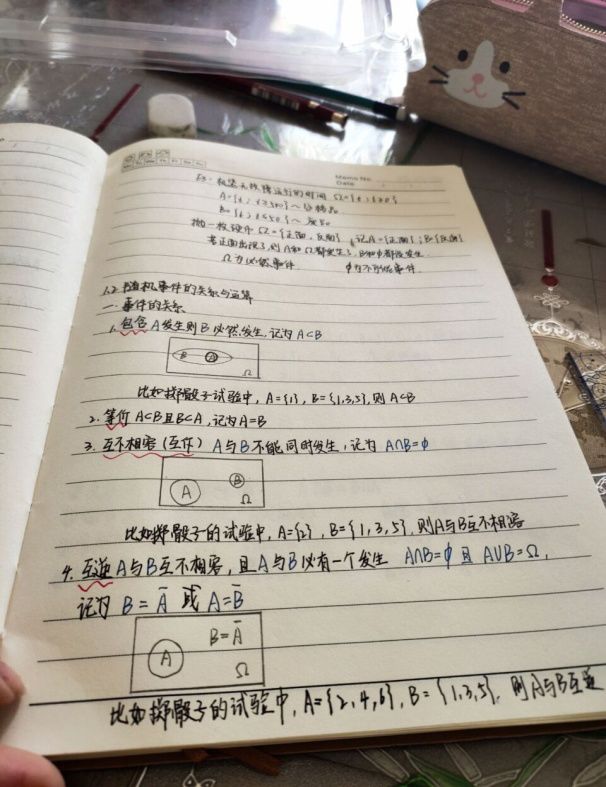 Memo No.
Date
E3. 机器无故障运行的时间 Ω={t; t≥0}
A={t; t≥500}~合格品
B={t; t≤50}~
抛一枚硬币 Ω={正面, 反面} 记A={正面}; B={反面}
若正面出现了, 则A和Ω都发生了, B和φ都没发生
Ω为必然事件 φ为不可能事件
1.2 随机事件的关系与运算
一. 事件的关系
1. 包含 A发生则B必然发生, 记为 A⊂B
B A Ω
比如掷骰子试验中, A={1}, B={1,3,5}, 则 A⊂B
2. 等价 A⊂B且B⊂A, 记为A=B
3. 互不相容(互斥) A与B不能同时发生, 记为 A∩B=φ
A B Ω
比如掷骰子的试验中, A={2}, B={1,3,5}, 则A与B互不相容
4. 互逆 A与B互不相容, 且A与B必有一个发生 A∩B=φ 且 A∪B=Ω,
记为 B=A̅ 或 A=B̅
A B=A̅ Ω
比如掷骰子的试验中, A={2,4,6}, B={1,3,5}, 则A与B互逆